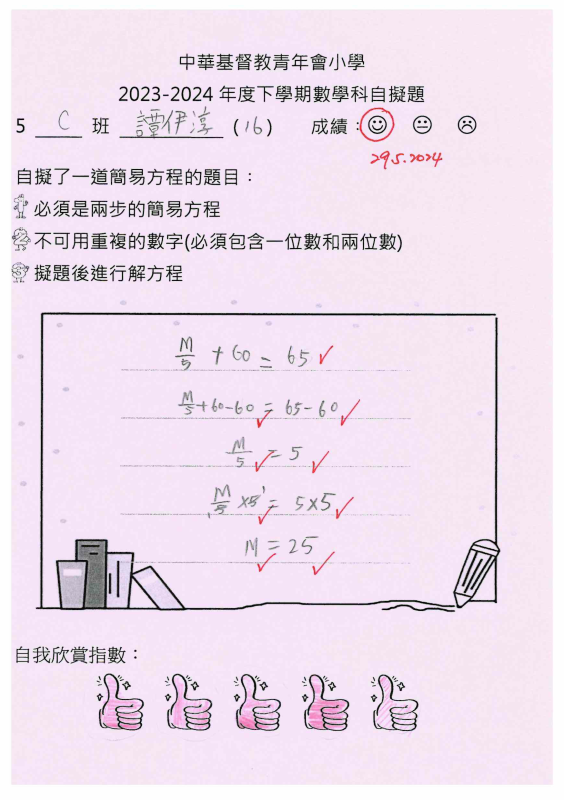 中華基督教青年會小學
2023-2024 年度下學期數學科自擬題
5 C 班 譚伊淳 (16) 成績：
29.5.2024
自擬了一道簡易方程的題目：
必須是兩步的簡易方程
不可用重複的數字(必須包含一位數和兩位數)
擬題後進行解方程
M/5 + 60 = 65
M/5 + 60 - 60 = 65 - 60
M/5 = 5
M/5 × 5 = 5 × 5
M = 25
自我欣賞指數：